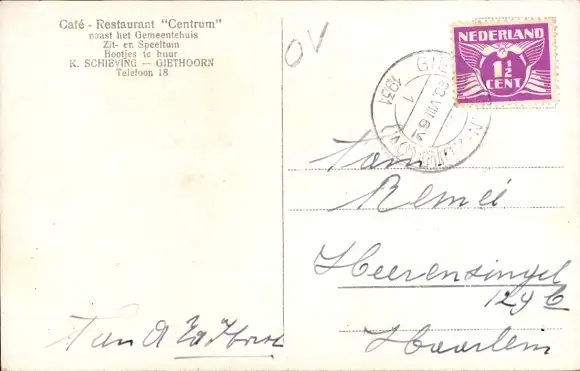 Café - Restaurant "Centrum"
naast het Gemeentehuis
Zit- en Speeltuin
Bootjes te huur
K. SCHIEVING — GIETHOORN
Telefoon 18
OV
NEDERLAND
1½
CENT
1931
Fam
Remei
Heerensingel
129 b
Haarlem